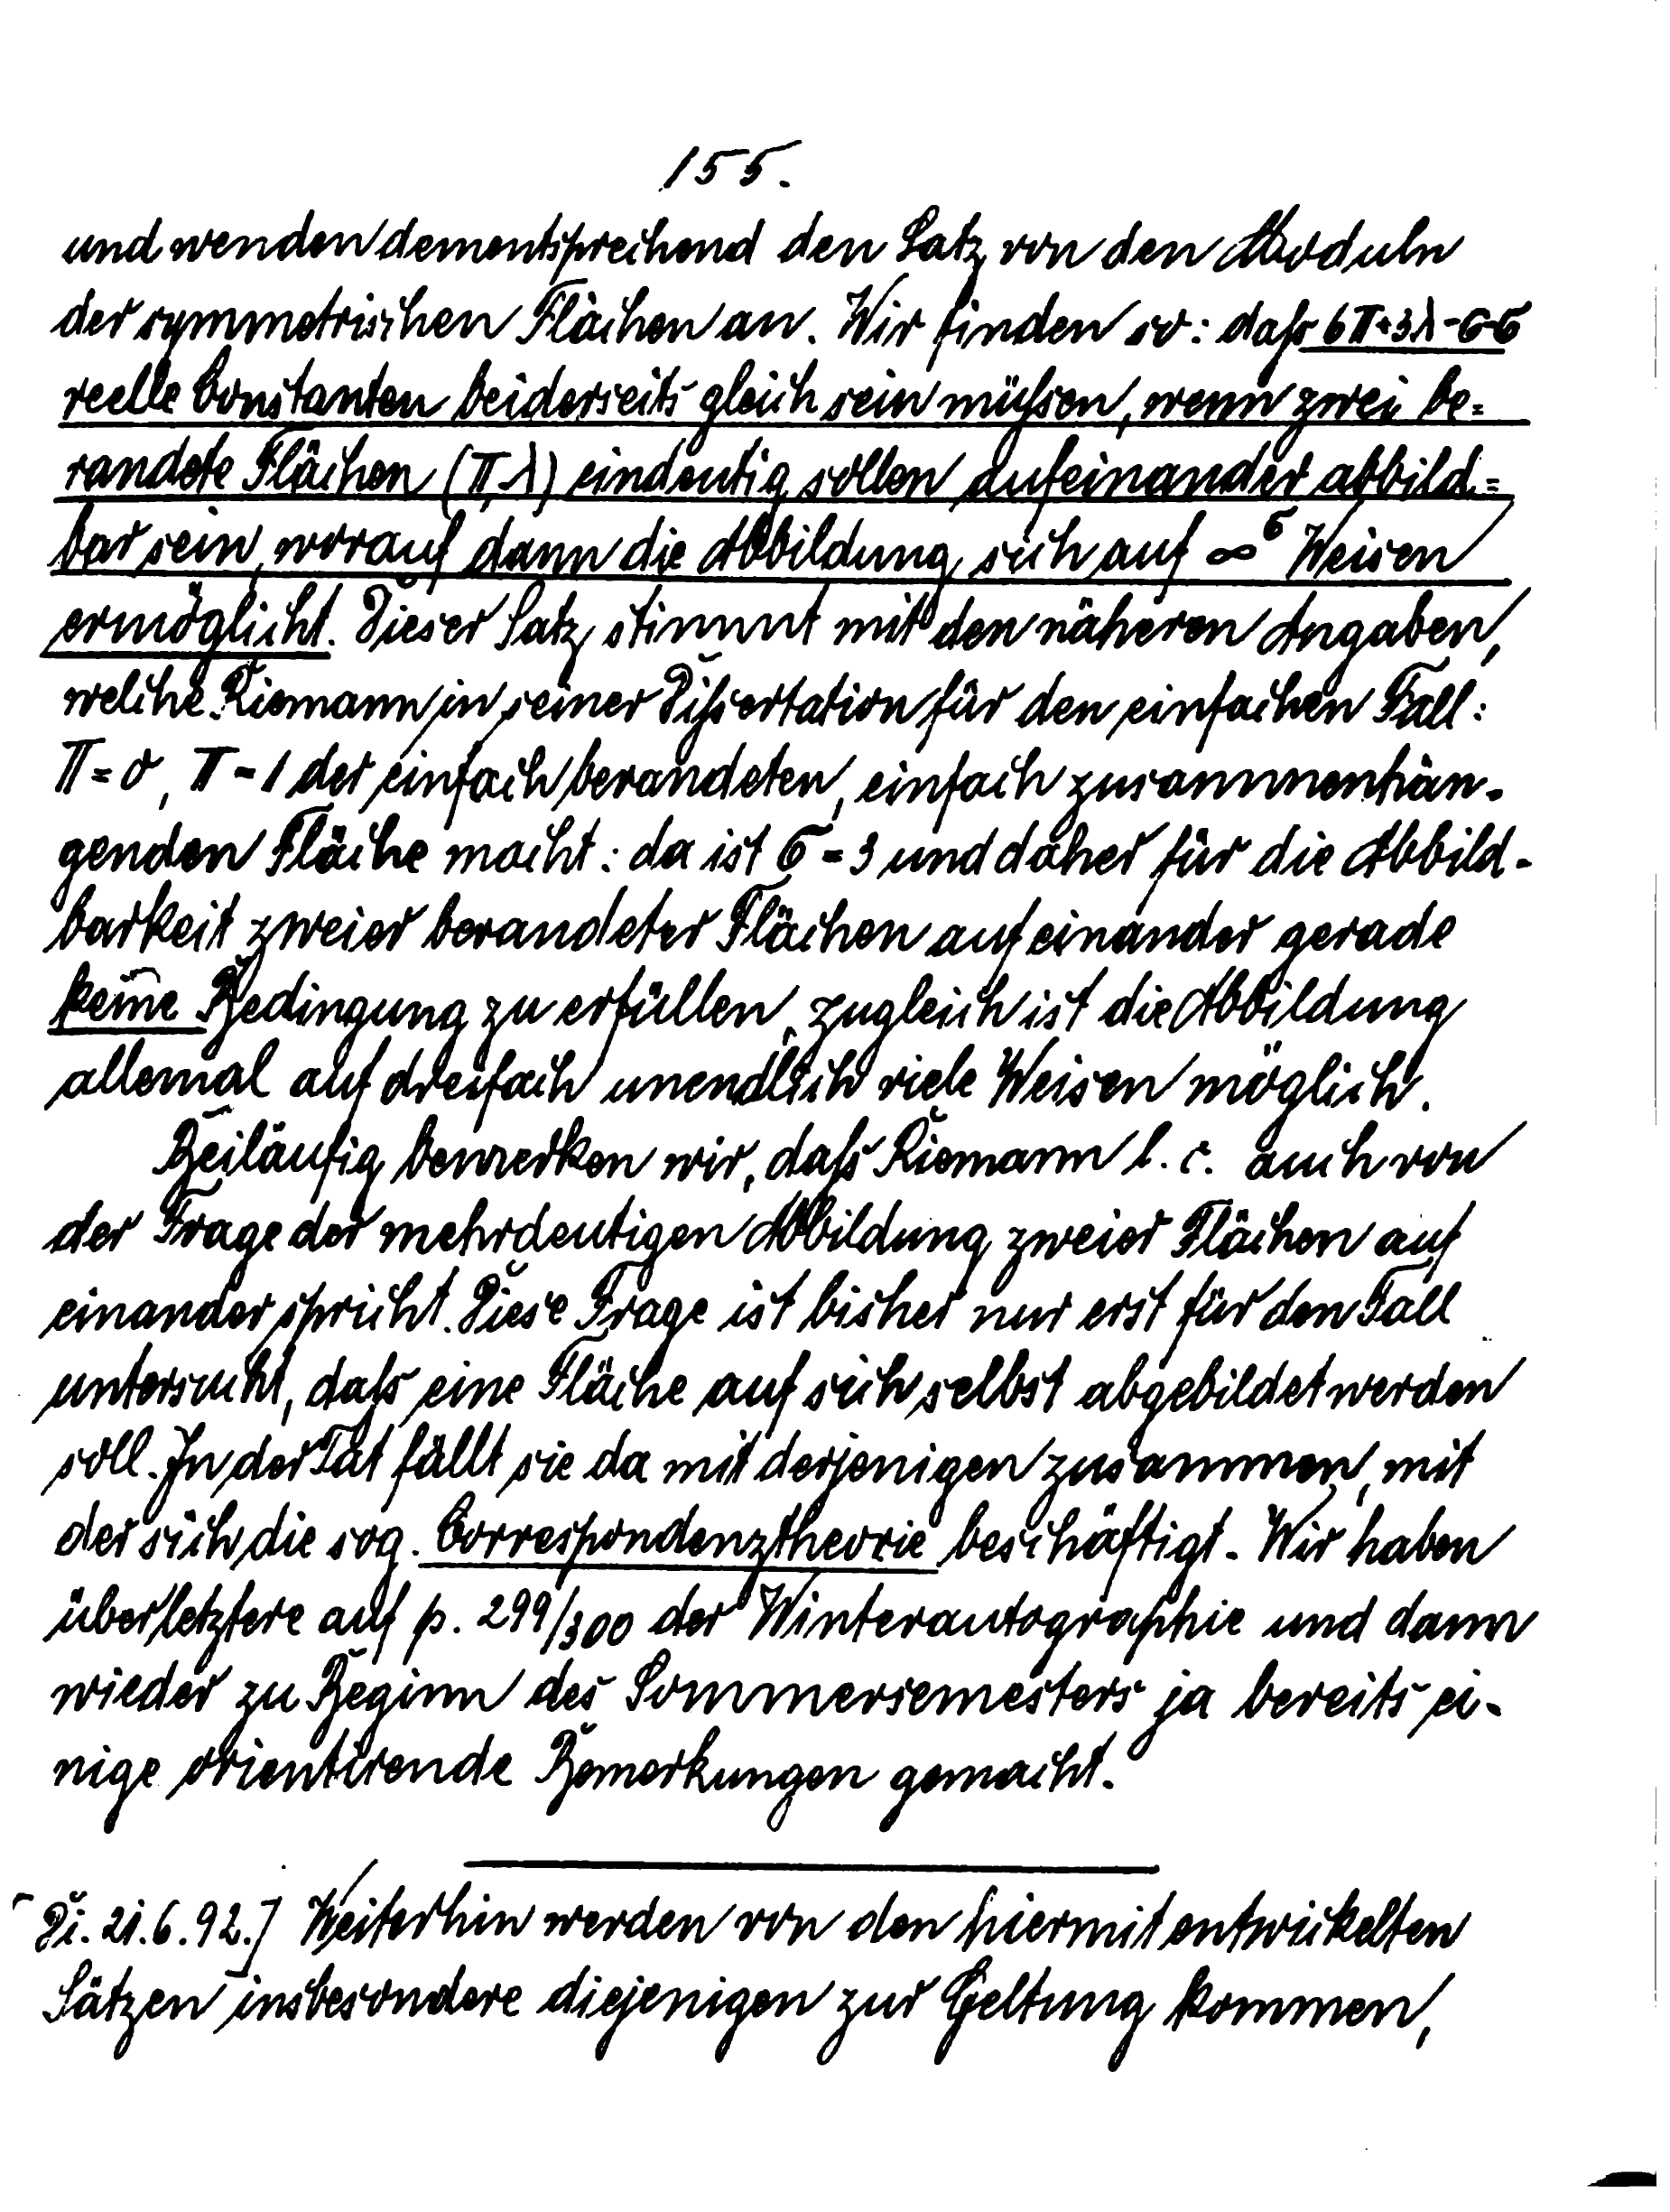 155.
und wenden dementsprechend den Satz von den Moduln
der symmetrischen Flächen an. Wir finden so: daß 6π+3λ-6+σ
reelle Constanten beiderseits gleich sein müßsen, wenn zwei be=
randete Flächen (π,λ) eindeutig sollen aufeinander abbild=
bar sein, worauf dann die Abbildung sich auf ∞^σ Weisen
ermöglicht. Dieser Satz stimmt mit den näheren Angaben,
welche Riemann in seiner Dißsertation für den einfachen Fall:
π=0, π=1 der einfach berandeten, einfach zusammenhän-
genden Fläche macht: da ist σ=3 und daher für die Abbild-
barkeit zweier berandeter Flächen auf einander gerade
keine Bedingung zu erfüllen, zugleich ist die Abbildung
allemal auf dreifach unendlich viele Weisen möglich.
Beiläufig bemerken wir, daß Riemann l. c. auch von
der Frage der mehrdeutigen Abbildung zweier Flächen auf
einander spricht. Diese Frage ist bisher nur erst für den Fall
untersucht, daß eine Fläche auf sich selbst abgebildet werden
soll. In der Tat fällt sie da mit derjenigen zusammen, mit
der sich die sog. Correspondenztheorie beschäftigt. Wir haben
über letztere auf p. 299/300 der Winterautographie und dann
wieder zu Beginn des Sommersemesters ja bereits ei-
nige orientirende Bemerkungen gemacht.
[Di. 21.6.92.] Weiterhin werden von den hiermit entwickelten
Sätzen insbesondere diejenigen zur Geltung kommen,